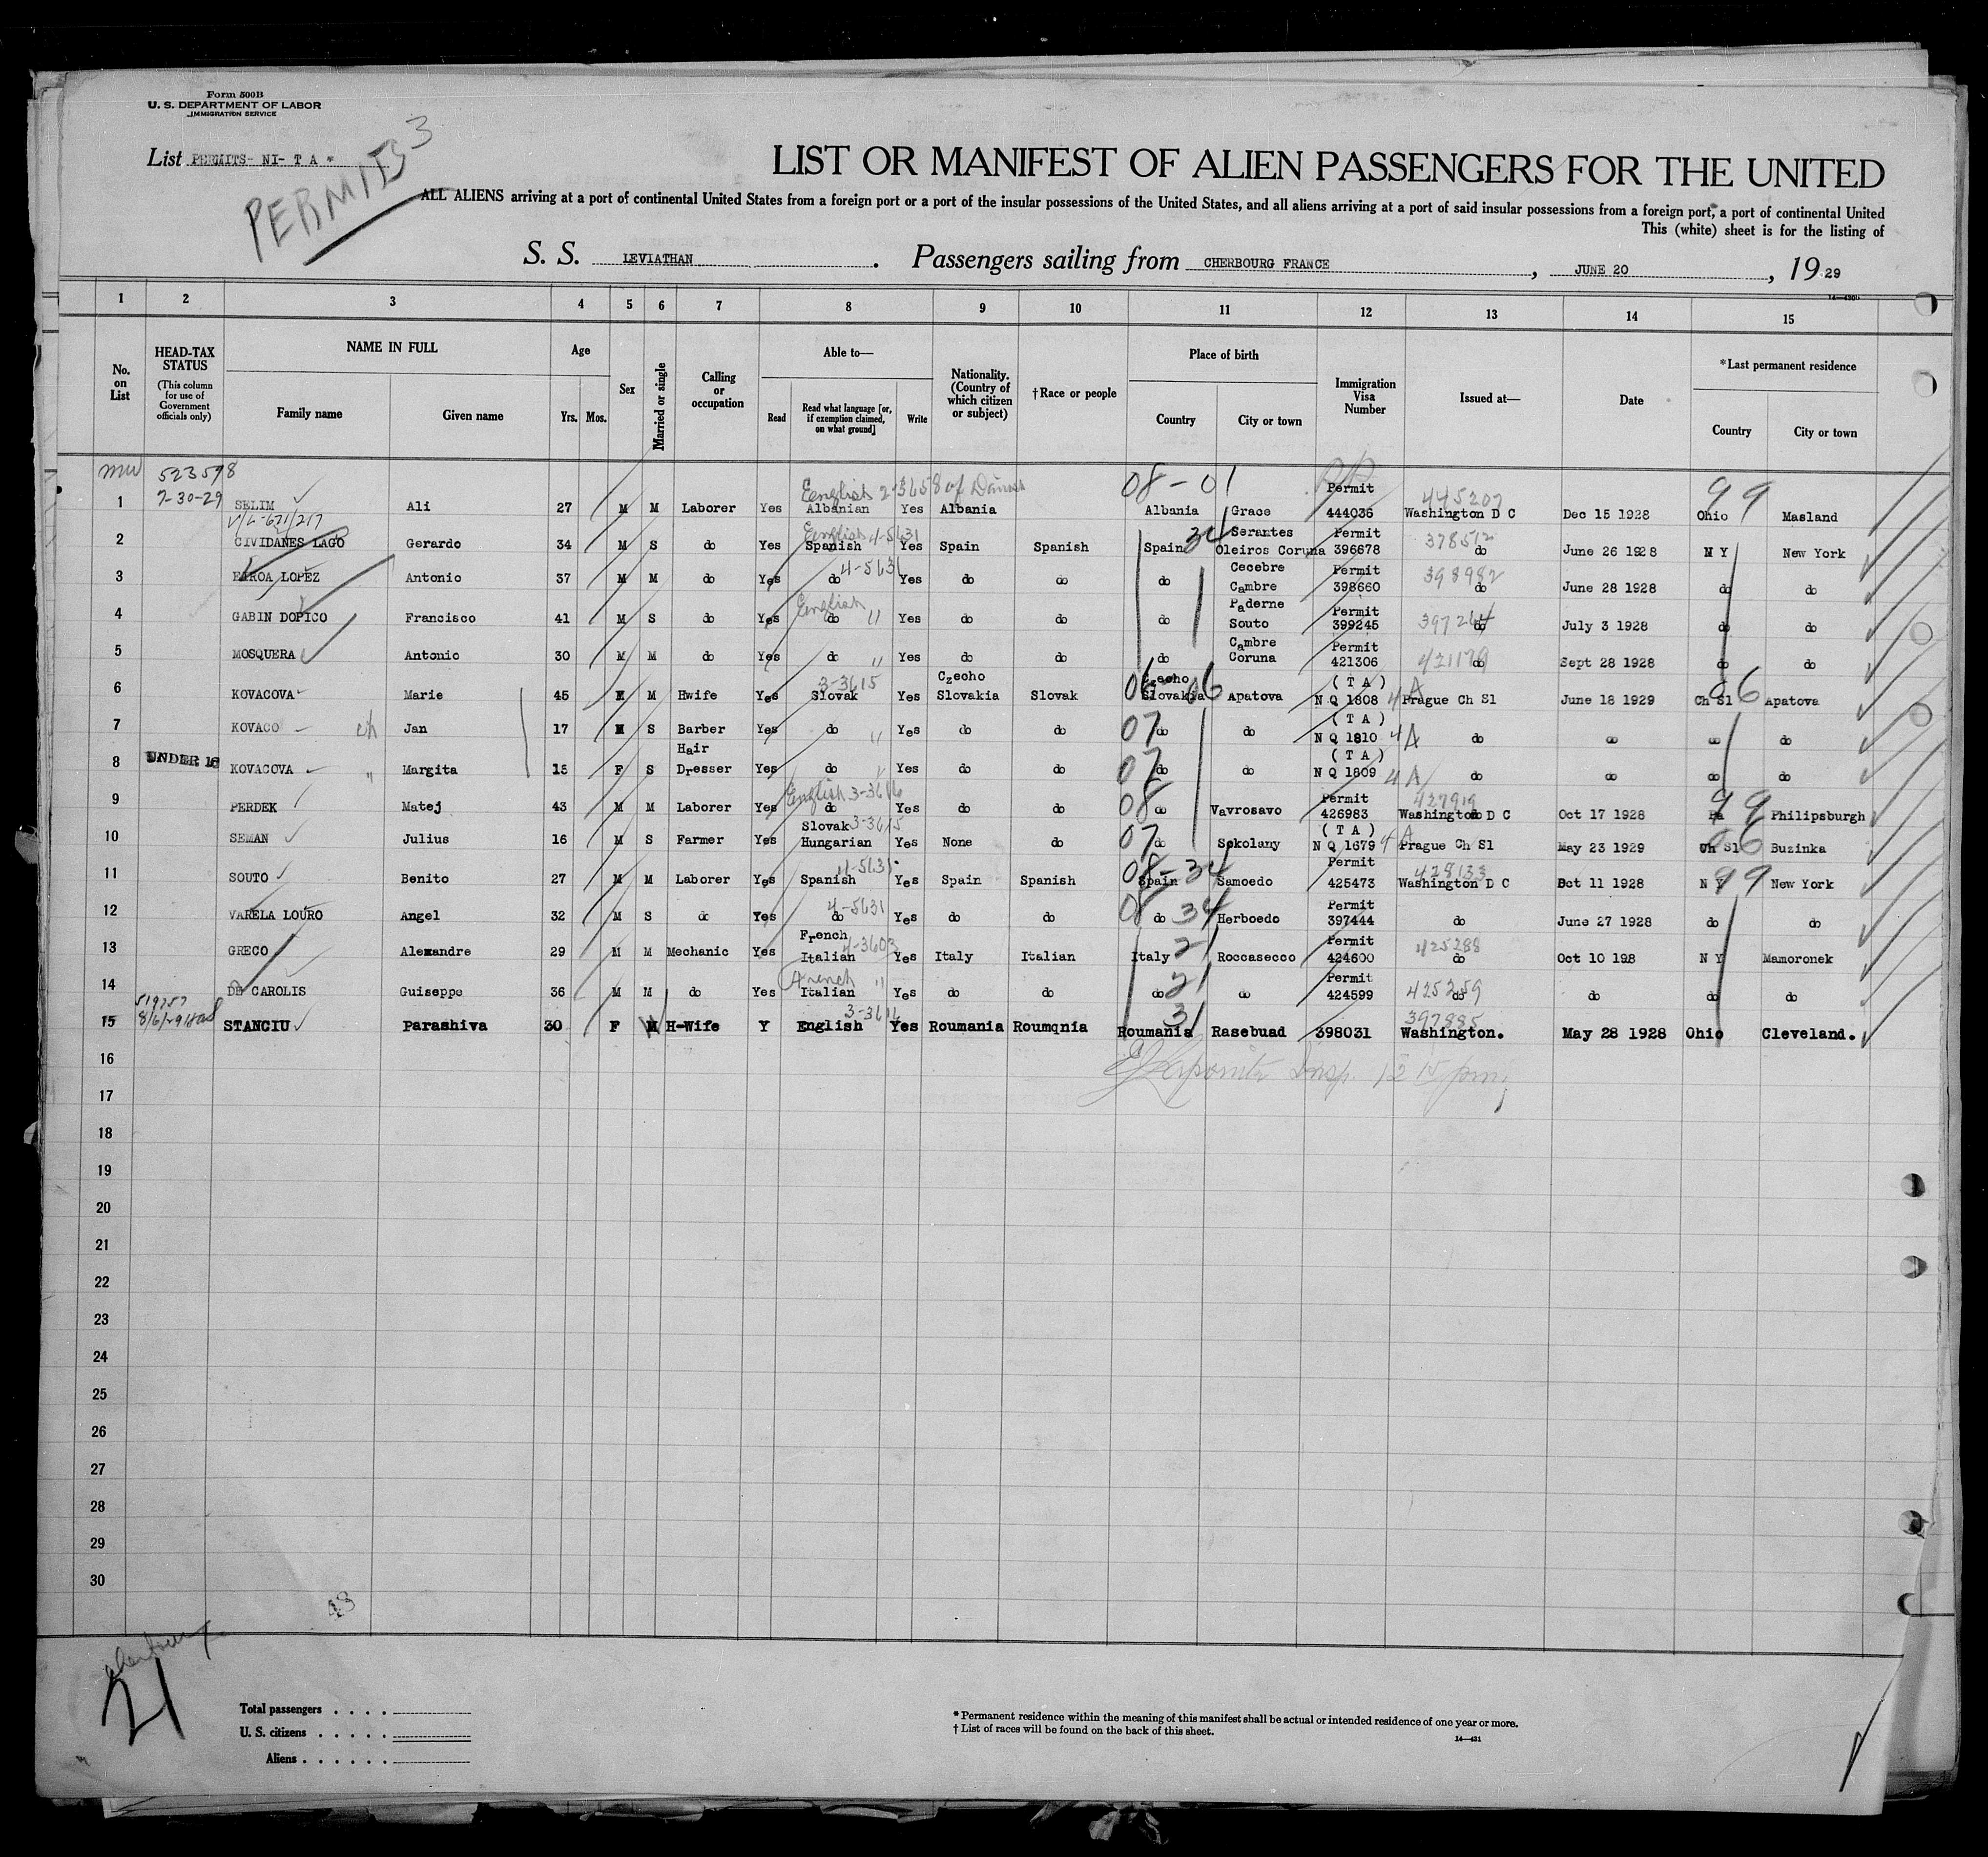 Form 500B
U. S. DEPARTMENT OF LABOR
IMMIGRATION SERVICE
List PERMITS- NI- T A *
PERMITS 3
LIST OR MANIFEST OF ALIEN PASSENGERS FOR THE UNITED
ALL ALIENS arriving at a port of continental United States from a foreign port or a port of the insular possessions of the United States, and all aliens arriving at a port of said insular possessions from a foreign port, a port of continental United
This (white) sheet is for the listing of
S. S. LEVIATHAN . Passengers sailing from CHERBOURG FRANCE , JUNE 20 , 19 29
1 2 3 4 5 6 7 8 9 10 11 12 13 14 15
No. on List
HEAD-TAX STATUS
(This column for use of Government officials only)
NAME IN FULL
Family name Given name
Age
Yrs. Mos.
Sex
Married or single
Calling or occupation
Able to—
Read
Read what language [or, if exemption claimed, on what ground]
Write
Nationality. (Country of which citizen or subject)
†Race or people
Place of birth
Country City or town
Immigration Visa Number
Issued at—
Date
*Last permanent residence
Country City or town
523598
7-30-29
08-01
99
English
445207
1 SELIM Ali 27 M M Laborer Yes Albanian Yes Albania Albania Grace Permit 444036 Washington D C Dec 15 1928 Ohio Masland
V/L-671/217
English 4-5631
34
378512
2 CIVIDANES LAGO Gerardo 34 M S do Yes Spanish Yes Spain Spanish Spain Serantes Oleiros Coruna 396678 do June 26 1928 N Y New York
4-5631
398982
3 FAROA LOPEZ Antonio 37 M M do Yes do Yes do do do Cecebre Cambre Permit 398660 do June 28 1928 do do
English "
397264
4 GABIN DOPICO Francisco 41 M S do Yes do Yes do do do Paderne Souto Permit 399245 do July 3 1928 do do
"
421179
5 MOSQUERA Antonio 30 M M do Yes do Yes do do do Cambre Coruna Permit 421306 do Sept 28 1928 do do
3-3615
06
06
4A
6 KOVACOVA Marie 45 F M Hwife Yes Slovak Yes Czecho Slovakia Slovak Czecho Slovakia Apatova ( T A ) N Q 1808 Prague Ch Sl June 18 1929 Ch Sl Apatova
07
4A
7 KOVACO Jan 17 M S Barber Yes do " Yes do do do do ( T A ) N Q 1810 do do do do
07
4A
8 UNDER 16 KOVACOVA " Margita 15 F S Hair Dresser Yes do " Yes do do do do ( T A ) N Q 1809 do do do do
English 3-3616
08
427919
99
9 PERDEK Matej 43 M M Laborer Yes do Yes do do do Vavrosavo Permit 426983 Washington D C Oct 17 1928 Pa Philipsburgh
3-3615
07
4A
06
10 SEMAN Julius 16 M S Farmer Yes Slovak Hungarian Yes None do do Sokolany ( T A ) N Q 1679 Prague Ch Sl May 23 1929 Ch Sl Buzinka
4-5631
08-34
428133
99
11 SOUTO Benito 27 M M Laborer Yes Spanish Yes Spain Spanish Spain Samoedo Permit 425473 Washington D C Oct 11 1928 N Y New York
4-5631
08 34
12 VARELA LOURO Angel 32 M S do Yes do Yes do do do Herboedo Permit 397444 do June 27 1928 do do
4-3603
21
425288
13 GRECO Alexandre 29 M M Mechanic Yes French Italian Yes Italy Italian Italy Roccasecco Permit 424600 do Oct 10 198 N Y Mamoronek
French "
21
425259
14 DE CAROLIS Guiseppe 36 M M do Yes Italian Yes do do do do Permit 424599 do do do do
3-3616
31
397885
15 STANCIU Parashiva 30 F M H-Wife Y English Yes Roumania Roumqnia Roumania Rasebuad 398031 Washington. May 28 1928 Ohio Cleveland.
16
17
18
19
20
21
22
23
24
25
26
27
28
29
30
48
21
Total passengers . . . .
U. S. citizens . . . . .
Aliens . . . . . .
* Permanent residence within the meaning of this manifest shall be actual or intended residence of one year or more.
† List of races will be found on the back of this sheet.
14—431